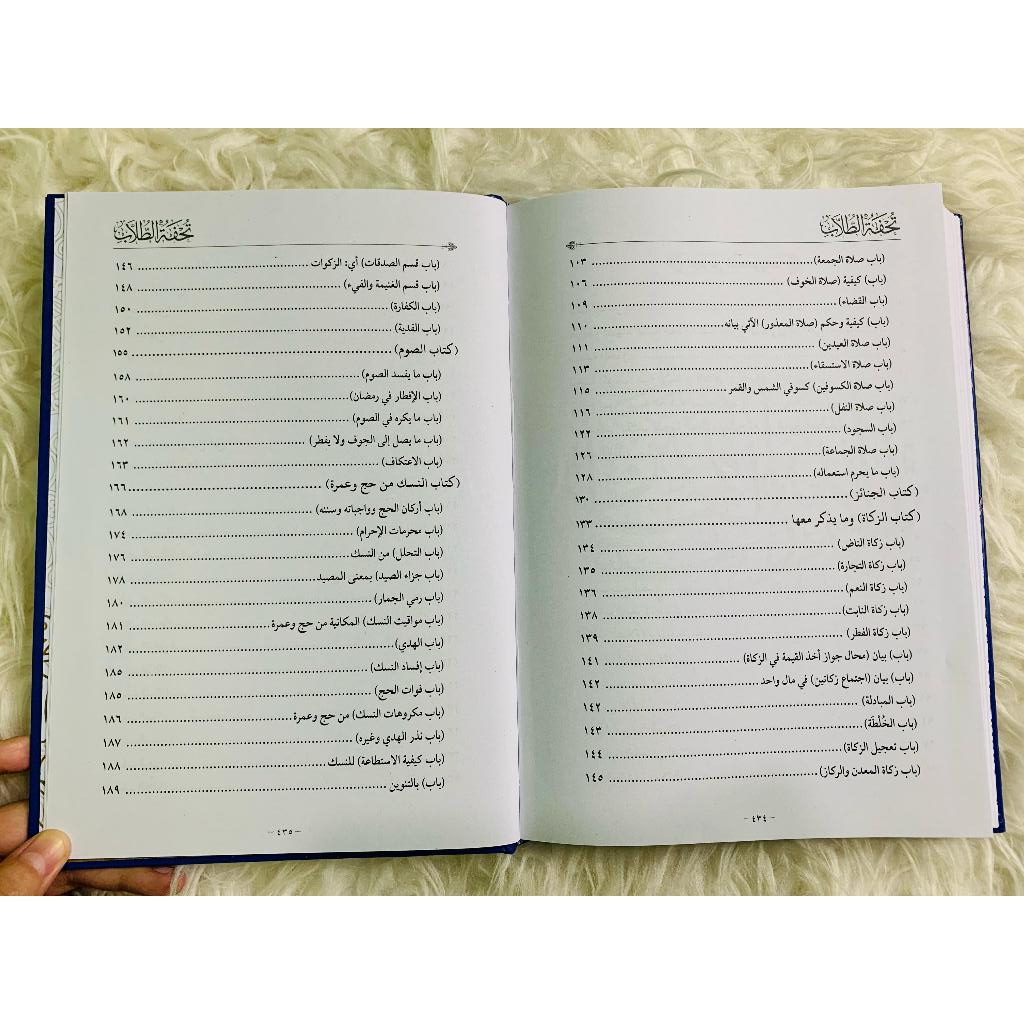 تُحْفَةُ الطُّلَّابِ
(باب صلاة الجمعة) ........ ١٠٣
(باب) كيفية (صلاة الخوف) ........ ١٠٦
(باب القضاء) ........ ١٠٩
(باب) كيفية وحكم (صلاة المعذور) الآتي بيانه ........ ١١٠
(باب صلاة العيدين) ........ ١١١
(باب صلاة الاستسقاء) ........ ١١٣
(باب صلاة الكسوفين) كسوفي الشمس والقمر ........ ١١٥
(باب صلاة النفل) ........ ١١٦
(باب السجود) ........ ١٢٢
(باب صلاة الجماعة) ........ ١٢٦
(باب ما يحرم استعماله) ........ ١٢٨
(كتاب الجنائز) ........ ١٣٠
(كتاب الزكاة) وما يذكر معها ........ ١٣٣
(باب زكاة الناض) ........ ١٣٤
(باب زكاة التجارة) ........ ١٣٥
(باب زكاة النعم) ........ ١٣٦
(باب زكاة النابت) ........ ١٣٨
(باب زكاة الفطر) ........ ١٣٩
(باب) بيان (محال جواز أخذ القيمة في الزكاة) ........ ١٤١
(باب) بيان (اجتماع زكاتين) في مال واحد ........ ١٤٢
(باب المبادلة) ........ ١٤٢
(باب الخُلْطَة) ........ ١٤٣
(باب تعجيل الزكاة) ........ ١٤٤
(باب زكاة المعدن والركاز) ........ ١٤٥
- ٤٣٤ -
تُحْفَةُ الطُّلَّابِ
(باب قسم الصدقات) أي: الزكوات ........ ١٤٦
(باب قسم الغنيمة والفيء) ........ ١٤٨
(باب الكفارة) ........ ١٥٠
(باب الفدية) ........ ١٥٢
(كتاب الصوم) ........ ١٥٥
(باب ما يفسد الصوم) ........ ١٥٨
(باب الإفطار في رمضان) ........ ١٦٠
(باب ما يكره في الصوم) ........ ١٦١
(باب ما يصل إلى الجوف ولا يفطر) ........ ١٦٢
(باب الاعتكاف) ........ ١٦٣
(كتاب النسك من حج وعمرة) ........ ١٦٦
(باب أركان الحج وواجباته وسننه) ........ ١٦٨
(باب محرمات الإحرام) ........ ١٧٤
(باب التحلل) من النسك ........ ١٧٦
(باب جزاء الصيد) بمعنى المصيد ........ ١٧٨
(باب رمي الجمار) ........ ١٨٠
(باب مواقيت النسك) المكانية من حج وعمرة ........ ١٨١
(باب الهدي) ........ ١٨٢
(باب إفساد النسك) ........ ١٨٥
(باب فوات الحج) ........ ١٨٥
(باب مكروهات النسك) من حج وعمرة ........ ١٨٦
(باب نذر الهدي وغيره) ........ ١٨٧
(باب كيفية الاستطاعة) للنسك ........ ١٨٨
(باب) بالتنوين ........ ١٨٩
- ٤٣٥ -